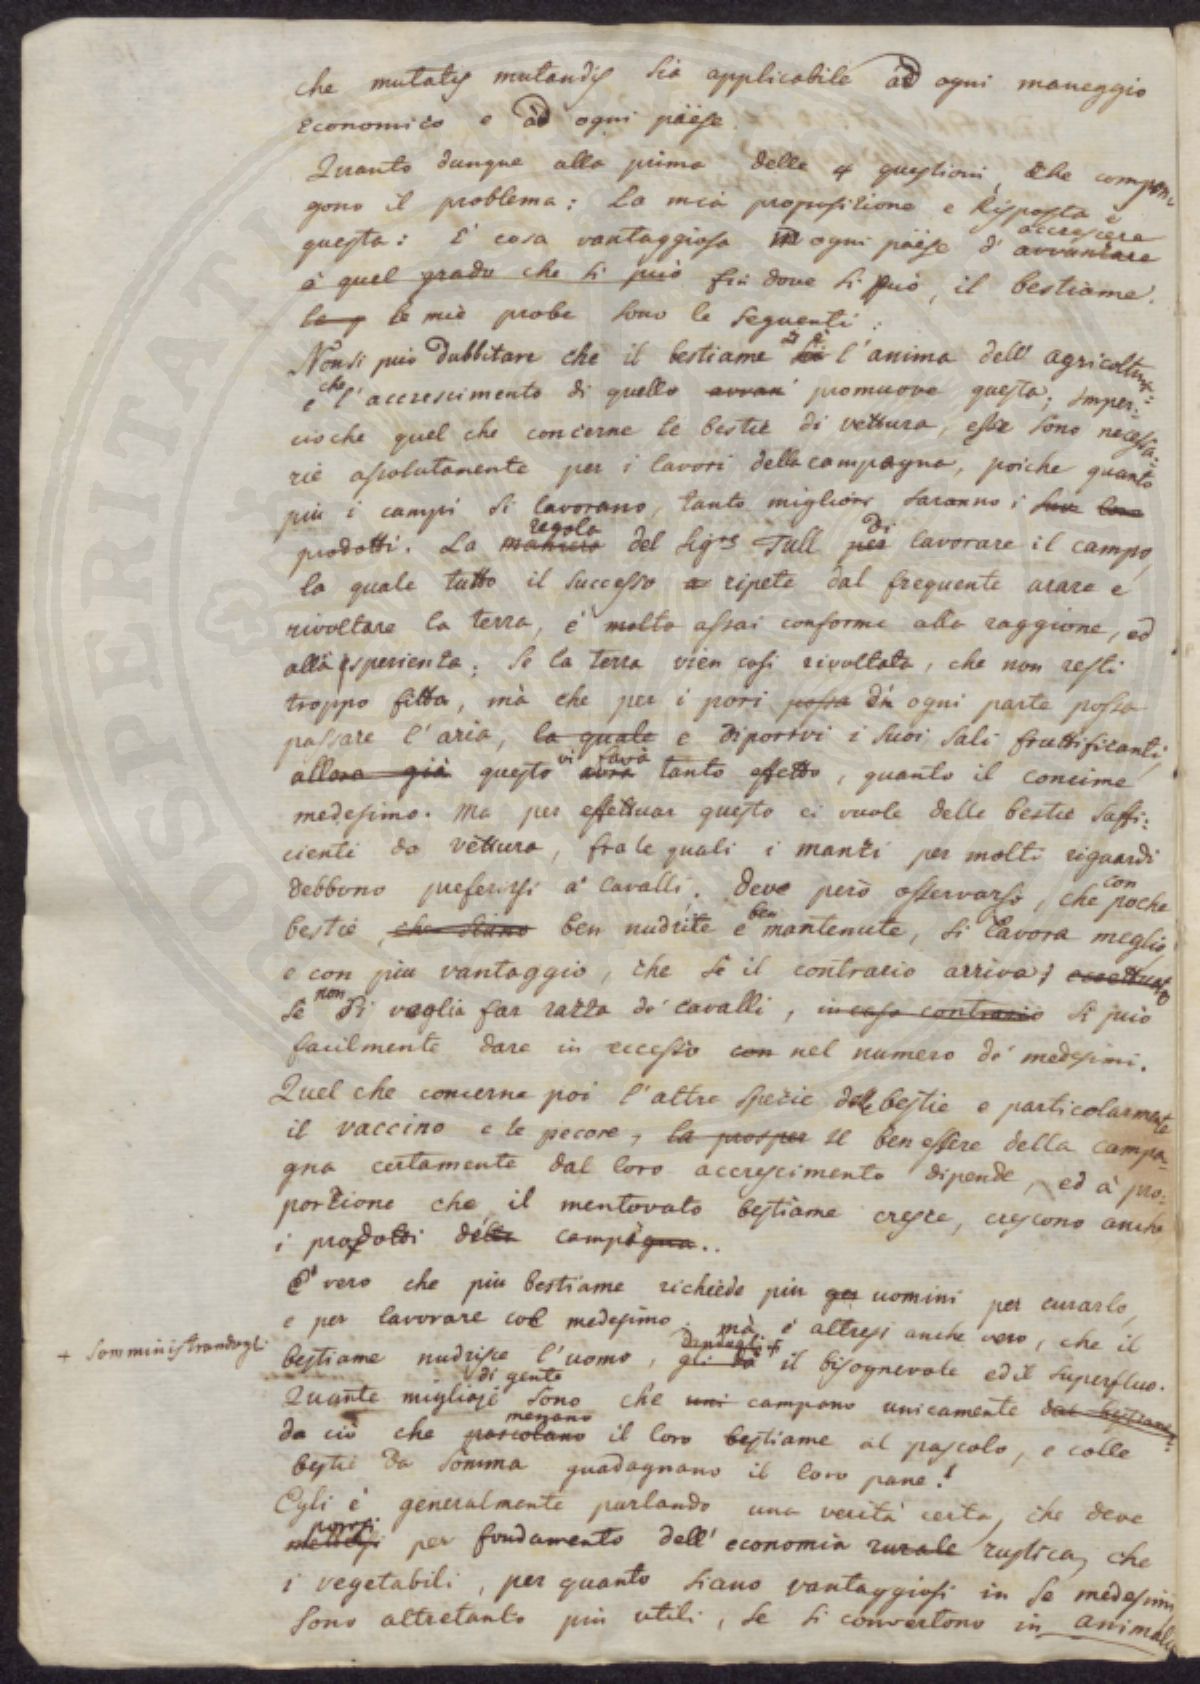 che mutatis mutandis sia applicabile ad ogni maneggio
economico e ad ogni päese.
Quanto dunque alla prima delle 4 questioni, che compon-
gono il problema: La mia proposizione e Risposta è
accrescere
questa: È cosa vantaggiosa in ogni päese d' avvanzare
à quel grado che si può fin dove si può, il bestiame.
le mie probe sono le seguenti:
Non si può dubbitare che il bestiame sia l'anima dell' agricoltura
che
e l'accrescimento di quello avvan promuove questa; imper:
cioche quel che concerne le bestie di vettura, esse sono necessa:
rie assolutamente per i lavori della campagna, poiche quanto
più i campi si lavorano, tanto migliori saranno i
regola di
prodotti. La maniera del Sigre Tull per lavorare il campo,
la quale tutto il successo ripete dal frequente arare e
rivoltare la terra, è molto assai conforme alla raggione, ed
alla sperienza. Se la terra vien cosi rivoltata, che non resti
troppo fitta, mà che per i pori possa di ogni parte possa
passare l'aria, la quale e diporvi i suoi sali fruttificanti,
vi farà
allora già questo avrà tanto effetto, quanto il concime
medesimo. Ma per effettuar questo ci vuole delle bestie suffi:
cienti da vettura, fra le quali i manzi per molti riguardi
debbono preferirsi a' cavalli. Deve però osservarsi, che con poche
ben
bestie, che siano ben nudrite e mantenute, si lavora meglio
e con più vantaggio, che se il contrario arriva; eccettuato
non
se si voglia far razza di cavalli, in caso contrario si può
facilmente dare in eccesso con nel numero de' medesimi.
Quel che concerne poi l'altre spezie delle bestie e particolarmente
il vaccino e le pecore, la prosper il ben essere della campa-
gna certamente dal loro accrescimento dipende, ed à pro:
porzione che il mentovato bestiame cresce, crescono anche
i prodotti della campagna..
È vero che più bestiame richiede più per uomini per curarlo,
e per lavorare col medesimo. mà è altresi anche vero, che il
dandogli +
+ somministrandogli
bestiame nudrisce l'uomo, gli dà il bisognevole ed il superfluo.
di gente
Quante migliaje sono che uni campano unicamente dal bestiame:
menano
da ciò che pascolano il loro bestiame al pascolo, e colle
bestie da somma guadagnano il loro pane!
Egli è generalmente parlando una verità certa, che deve
porsi
mettersi per fondamento dell' economia rurale rustica, che
i vegetabili, per quanto siano vantaggiosi in se medesimi
sono altretanto più utili, se si convertono in animali